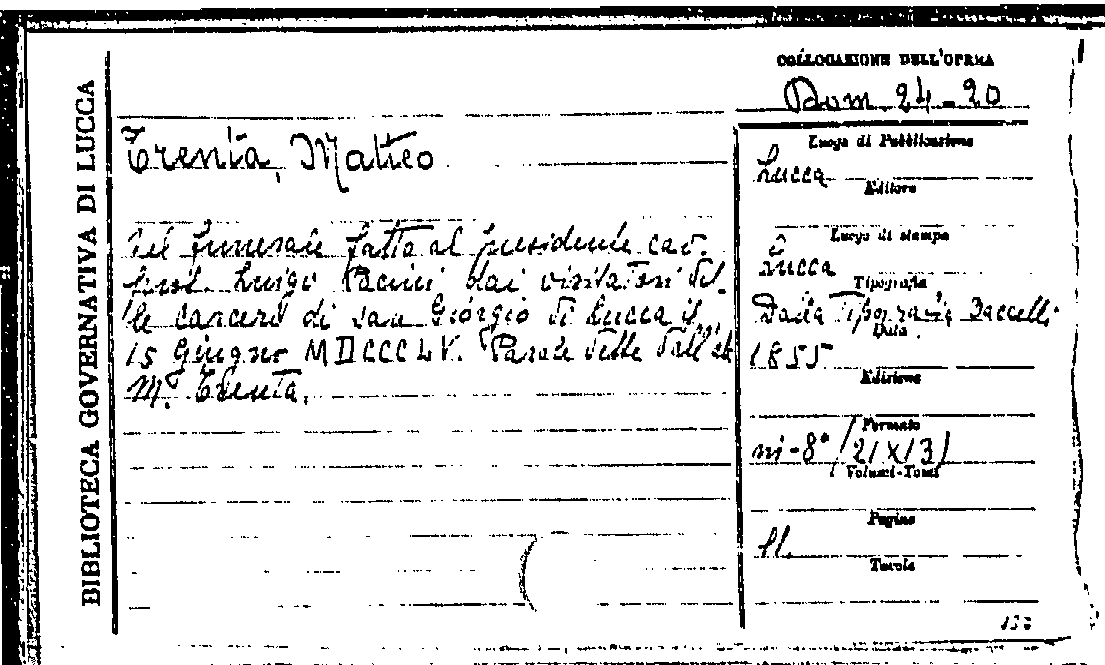 BIBLIOTECA GOVERNATIVA DI LUCCA
COLLOCAZIONE DELL'OPERA
Dom. 24-20
Trenta, Matteo
Nel funerale fatto al presidente cav.
prof. Luigi Pacini dai visitatori del-
le carceri di san Giorgio di Lucca il
15 Giugno MDCCCLV. Parole dette dall'ab
M. Trenta.
Luogo di Pubblicazione
Lucca
Editore
Luogo di stampa
Lucca
Tipografia
Dalla Tipografia Baccelli
Data
1855
Edizione
Formato
in-8° (21X13)
Volumi-Tomi
Pagine
11.
Tavole